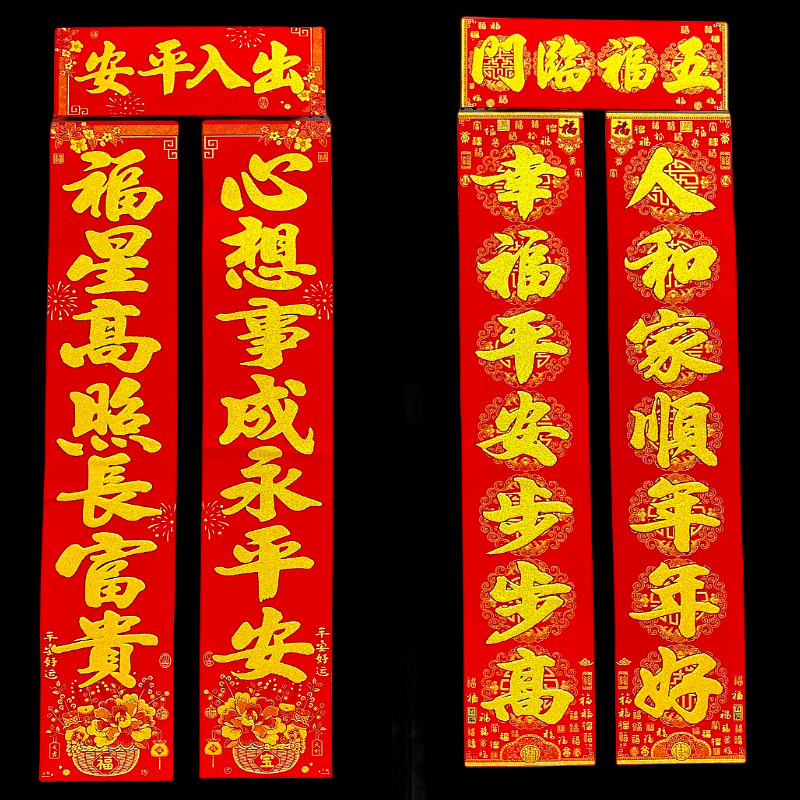 出入平安
心想事成永平安
福星高照長富貴
平安好运
平安好运
福
宝
五福臨門
人和家順年年好
幸福平安步步高
福
福